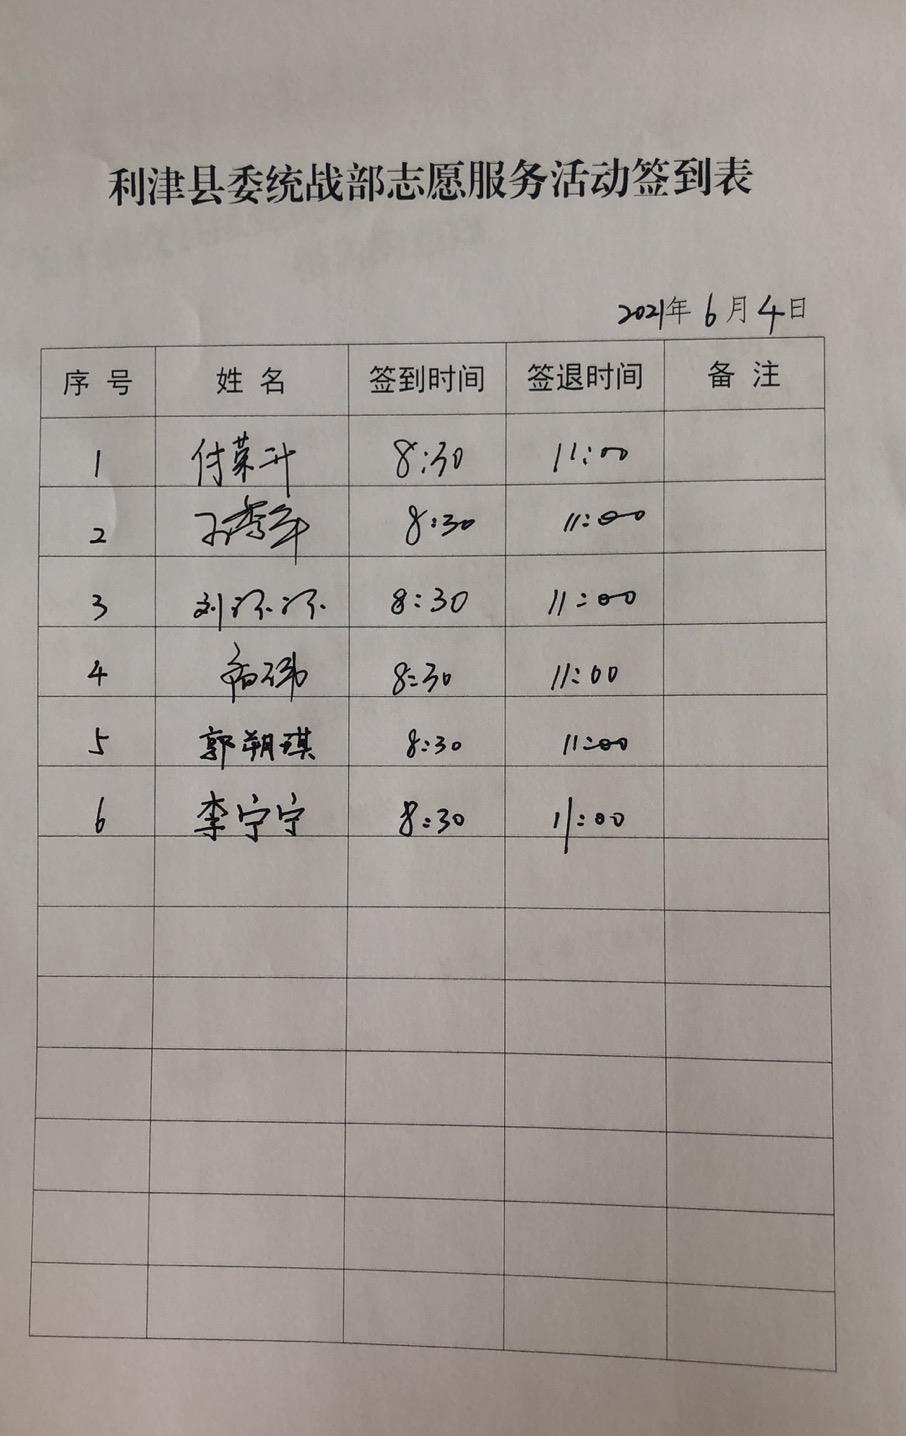 利津县委统战部志愿服务活动签到表
2021年 6月 4日
序号 姓名 签到时间 签退时间 备注
1 付荣升 8:30 11:00
2 8:30 11:00
3 刘环环 8:30 11:00
4 8:30 11:00
5 郭朔琪 8:30 11:00
6 李宁宁 8:30 11:00